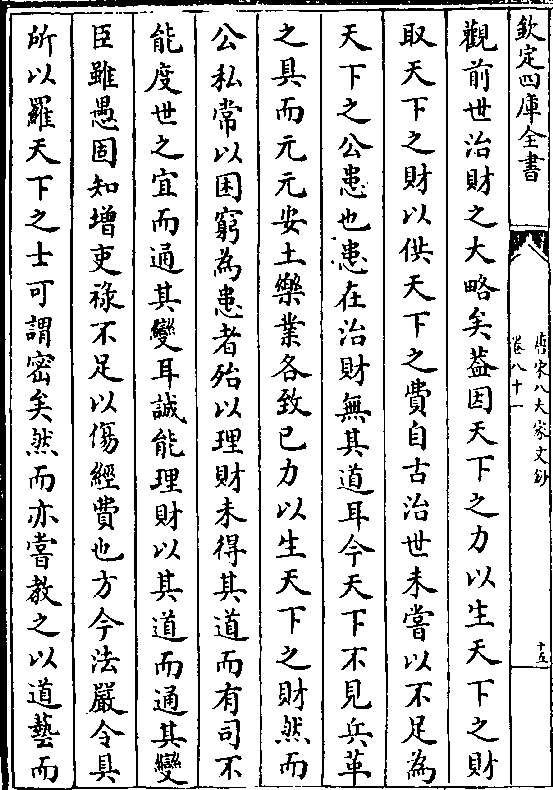 欽定四庫全書
唐宋八大家文鈔
卷八十一
十五
觀前世治財之大略矣葢因天下之力以生天下之財
取天下之財以供天下之費自古治世未嘗以不足為
天下之公患也患在治財無其道耳今天下不見兵革
之具而元元安土樂業各致已力以生天下之財然而
公私常以困窮為患者殆以理財未得其道而有司不
能度世之宜而通其變耳誠能理財以其道而通其變
臣雖愚固知增吏祿不足以傷經費也方今法嚴令具
所以羅天下之士可謂密矣然而亦嘗教之以道藝而